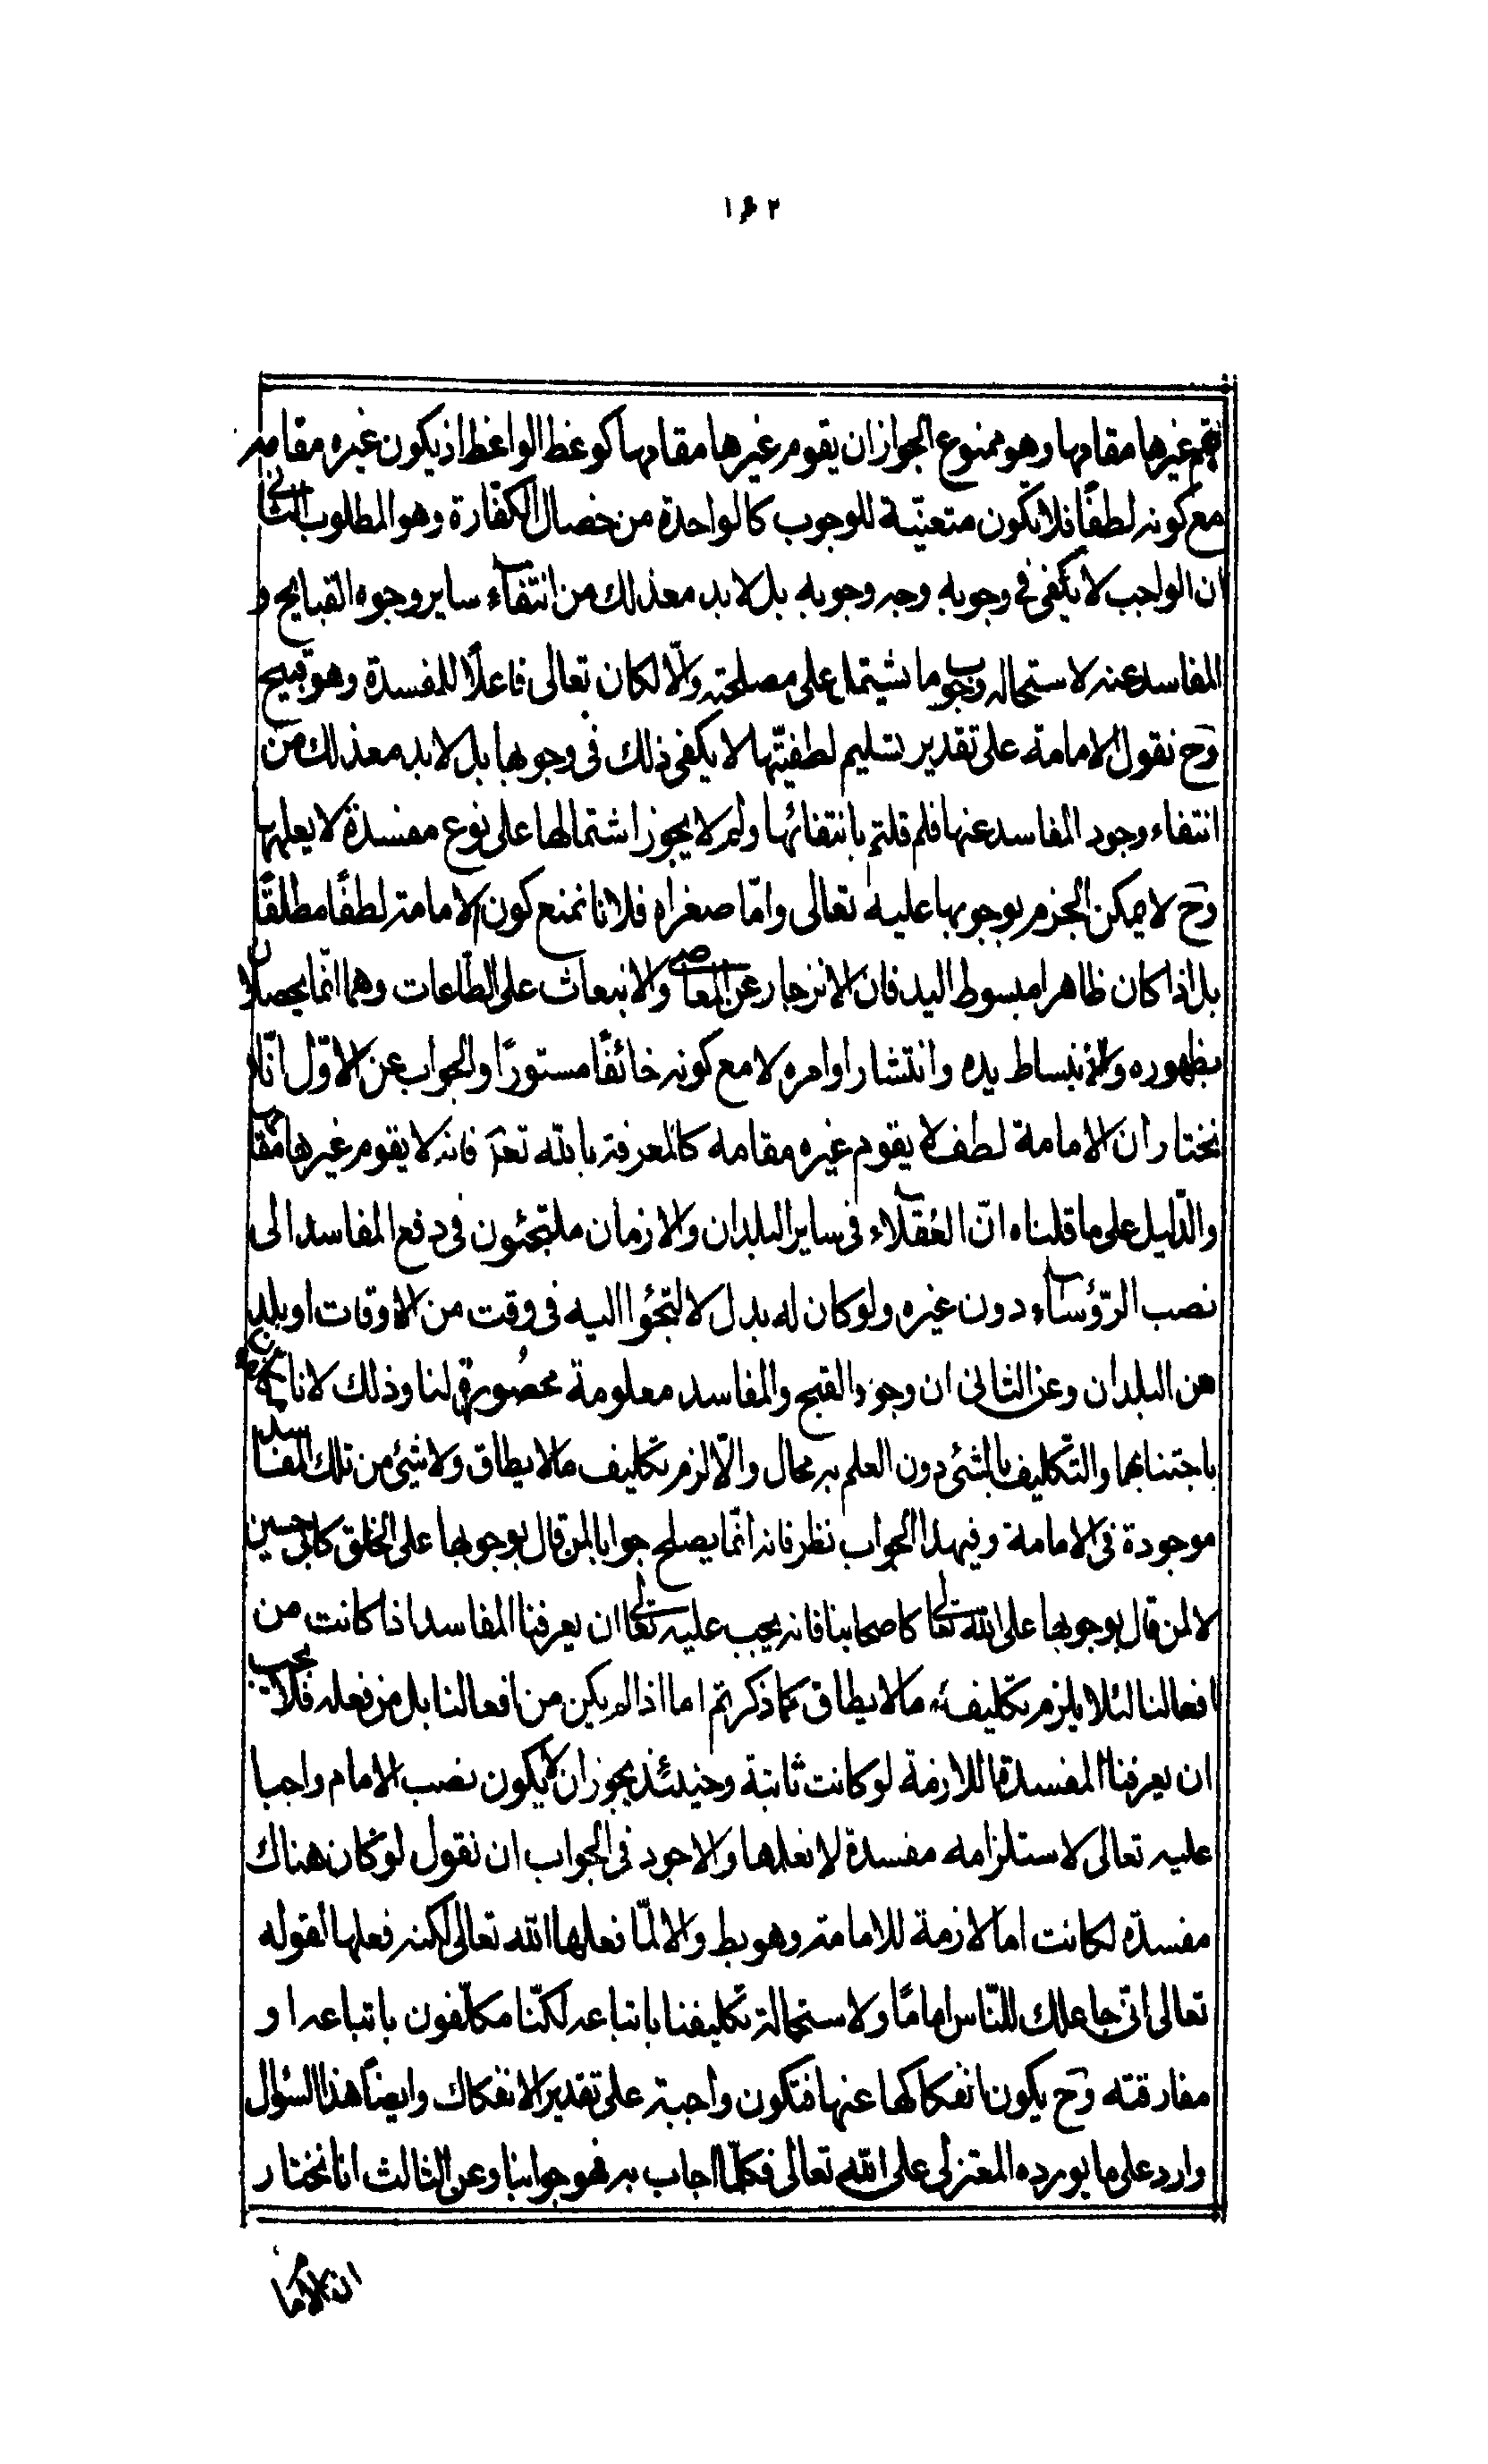 ١۶٢
يقم غيرها مقامها وهو ممنوع الجواز ان يقوم غيرها مقامها كوعظ الواعظ اذ يكون غيره مقامه
مع كونه لطفًا فلا تكون متعيّنة للوجوب كالواحدة من خصال الكفّارة وهو المطلوب الثانى
ان الواجب لا يكفى فى وجوبه وجه وجوبه بل لا بد مع ذلك من انتفاء ساير وجوه القبايح و
المفاسد عنه لاستحاله وجوب ما يشتمل على مصلحته والّا لكان تعالى فاعلًا للمفسدة وهو قبيح
وح نقول الامامة على تقدير تسليم لطفيّتها لا يكفى ذلك فى وجوبها بل لا بد مع ذلك من
انتفاء وجود المفاسد عنها فلم قلتم بانتفائها ولم لا يجوز اشتمالها على نوع مفسدة لا يعلمها
وح لا يمكن الجزم بوجوبها عليه تعالى وامّا صغراه فلانا نمنع كون الامامة لطفًا مطلقًا
بل اذا كان ظاهرا مبسوط اليد فان الانزجار عن المعاصى والانبعاث على الطّاعات وهما انّما يحصلان
بظهوره والانبساط يده وانتشار اوامره لا مع كونه خائفًا مستورًا والجواب عن الاوّل انّا
نختار ان الامامة لطف لا يقوم غيره مقامه كالمعرفة بالله تعم فانه لا يقوم غيرها مقامها
والدّليل على ما قلناه انّ العُقلاء فى ساير البلدان والازمان ملتجئون فى دفع المفاسد الى
نصب الرّؤساء دون غيره ولو كان له بدل لالتجئوا اليه فى وقت من الاوقات او بلد
من البلدان وعن الثانى ان وجوه القبح والمفاسد معلومة محصُورة لنا وذلك لانا مكلفون
باجتنابها والتّكليف بالشئ دون العلم به محال والّا لزم تكليف ما لا يطاق ولا شئ من تلك المفاسد
موجودة فى الامامة وفى هذا الجواب نظر فانه انّما يصلح جوابا لمن قال بوجوبها على الخلق كابى حسين
لا لمن قال بوجوبها على الله تعالى كاصحابنا فانه يجب عليه تعالى ان يعرفنا المفاسد اذا كانت من
افعالنا لئلا يلزم تكليف ما لا يطاق كما ذكرتم اما اذا لم يكن من افعالنا بل من فعله فلا يجب
ان يعرفنا المفسدة اللازمة لو كانت ثابتة وحينئذ يجوز ان لا يكون نصب الامام واجبا
عليه تعالى لاستلزامه مفسدة لا نعلمها والاجود فى الجواب ان نقول لو كان هناك
مفسدة لكانت اما لازمة للامامة وهو بط والا لمّا فعلها الله تعالى لكنه فعلها لقوله
تعالى انّى جاعلك للنّاس امامًا ولاستحالة تكليفنا باتباعه لكنّنا مكلّفون باتباعه او
مفارقته وح يكون انفكاكها عنها فتكون واجبة على تقدير الانفكاك وايضًا هذا السّؤال
وارد على ما يورده المعتزلى على الله تعالى فكلّما اجاب به فهو جوابنا وعن الثالث انا نختار
ان الاما